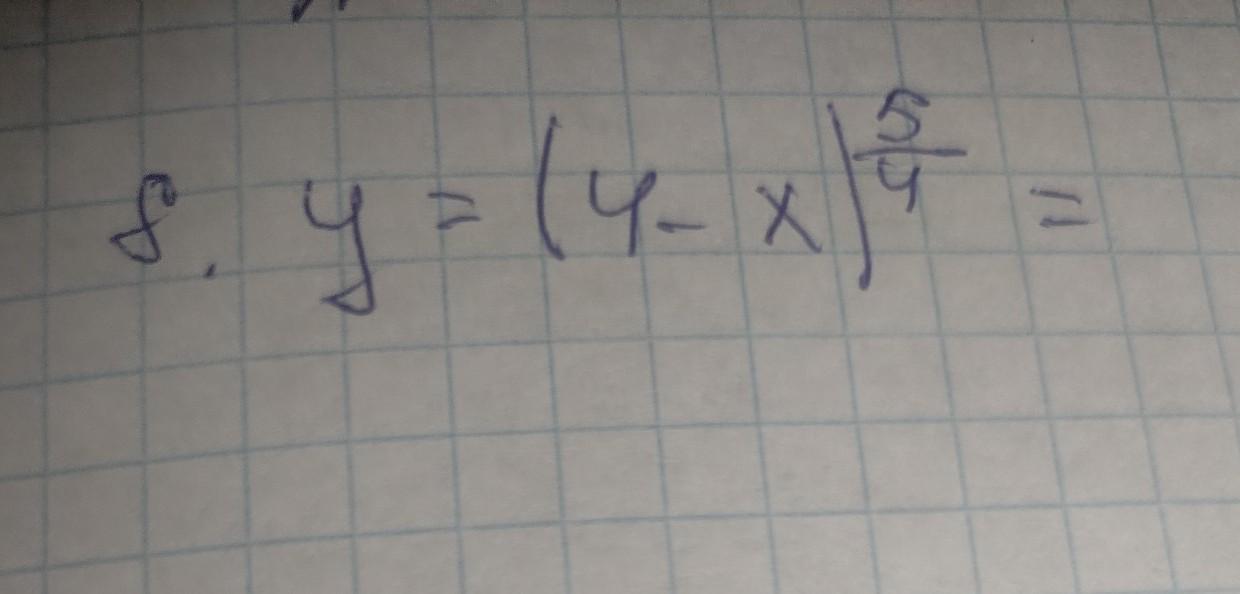 8. y = (4 - x)^{\frac{5}{4}} =